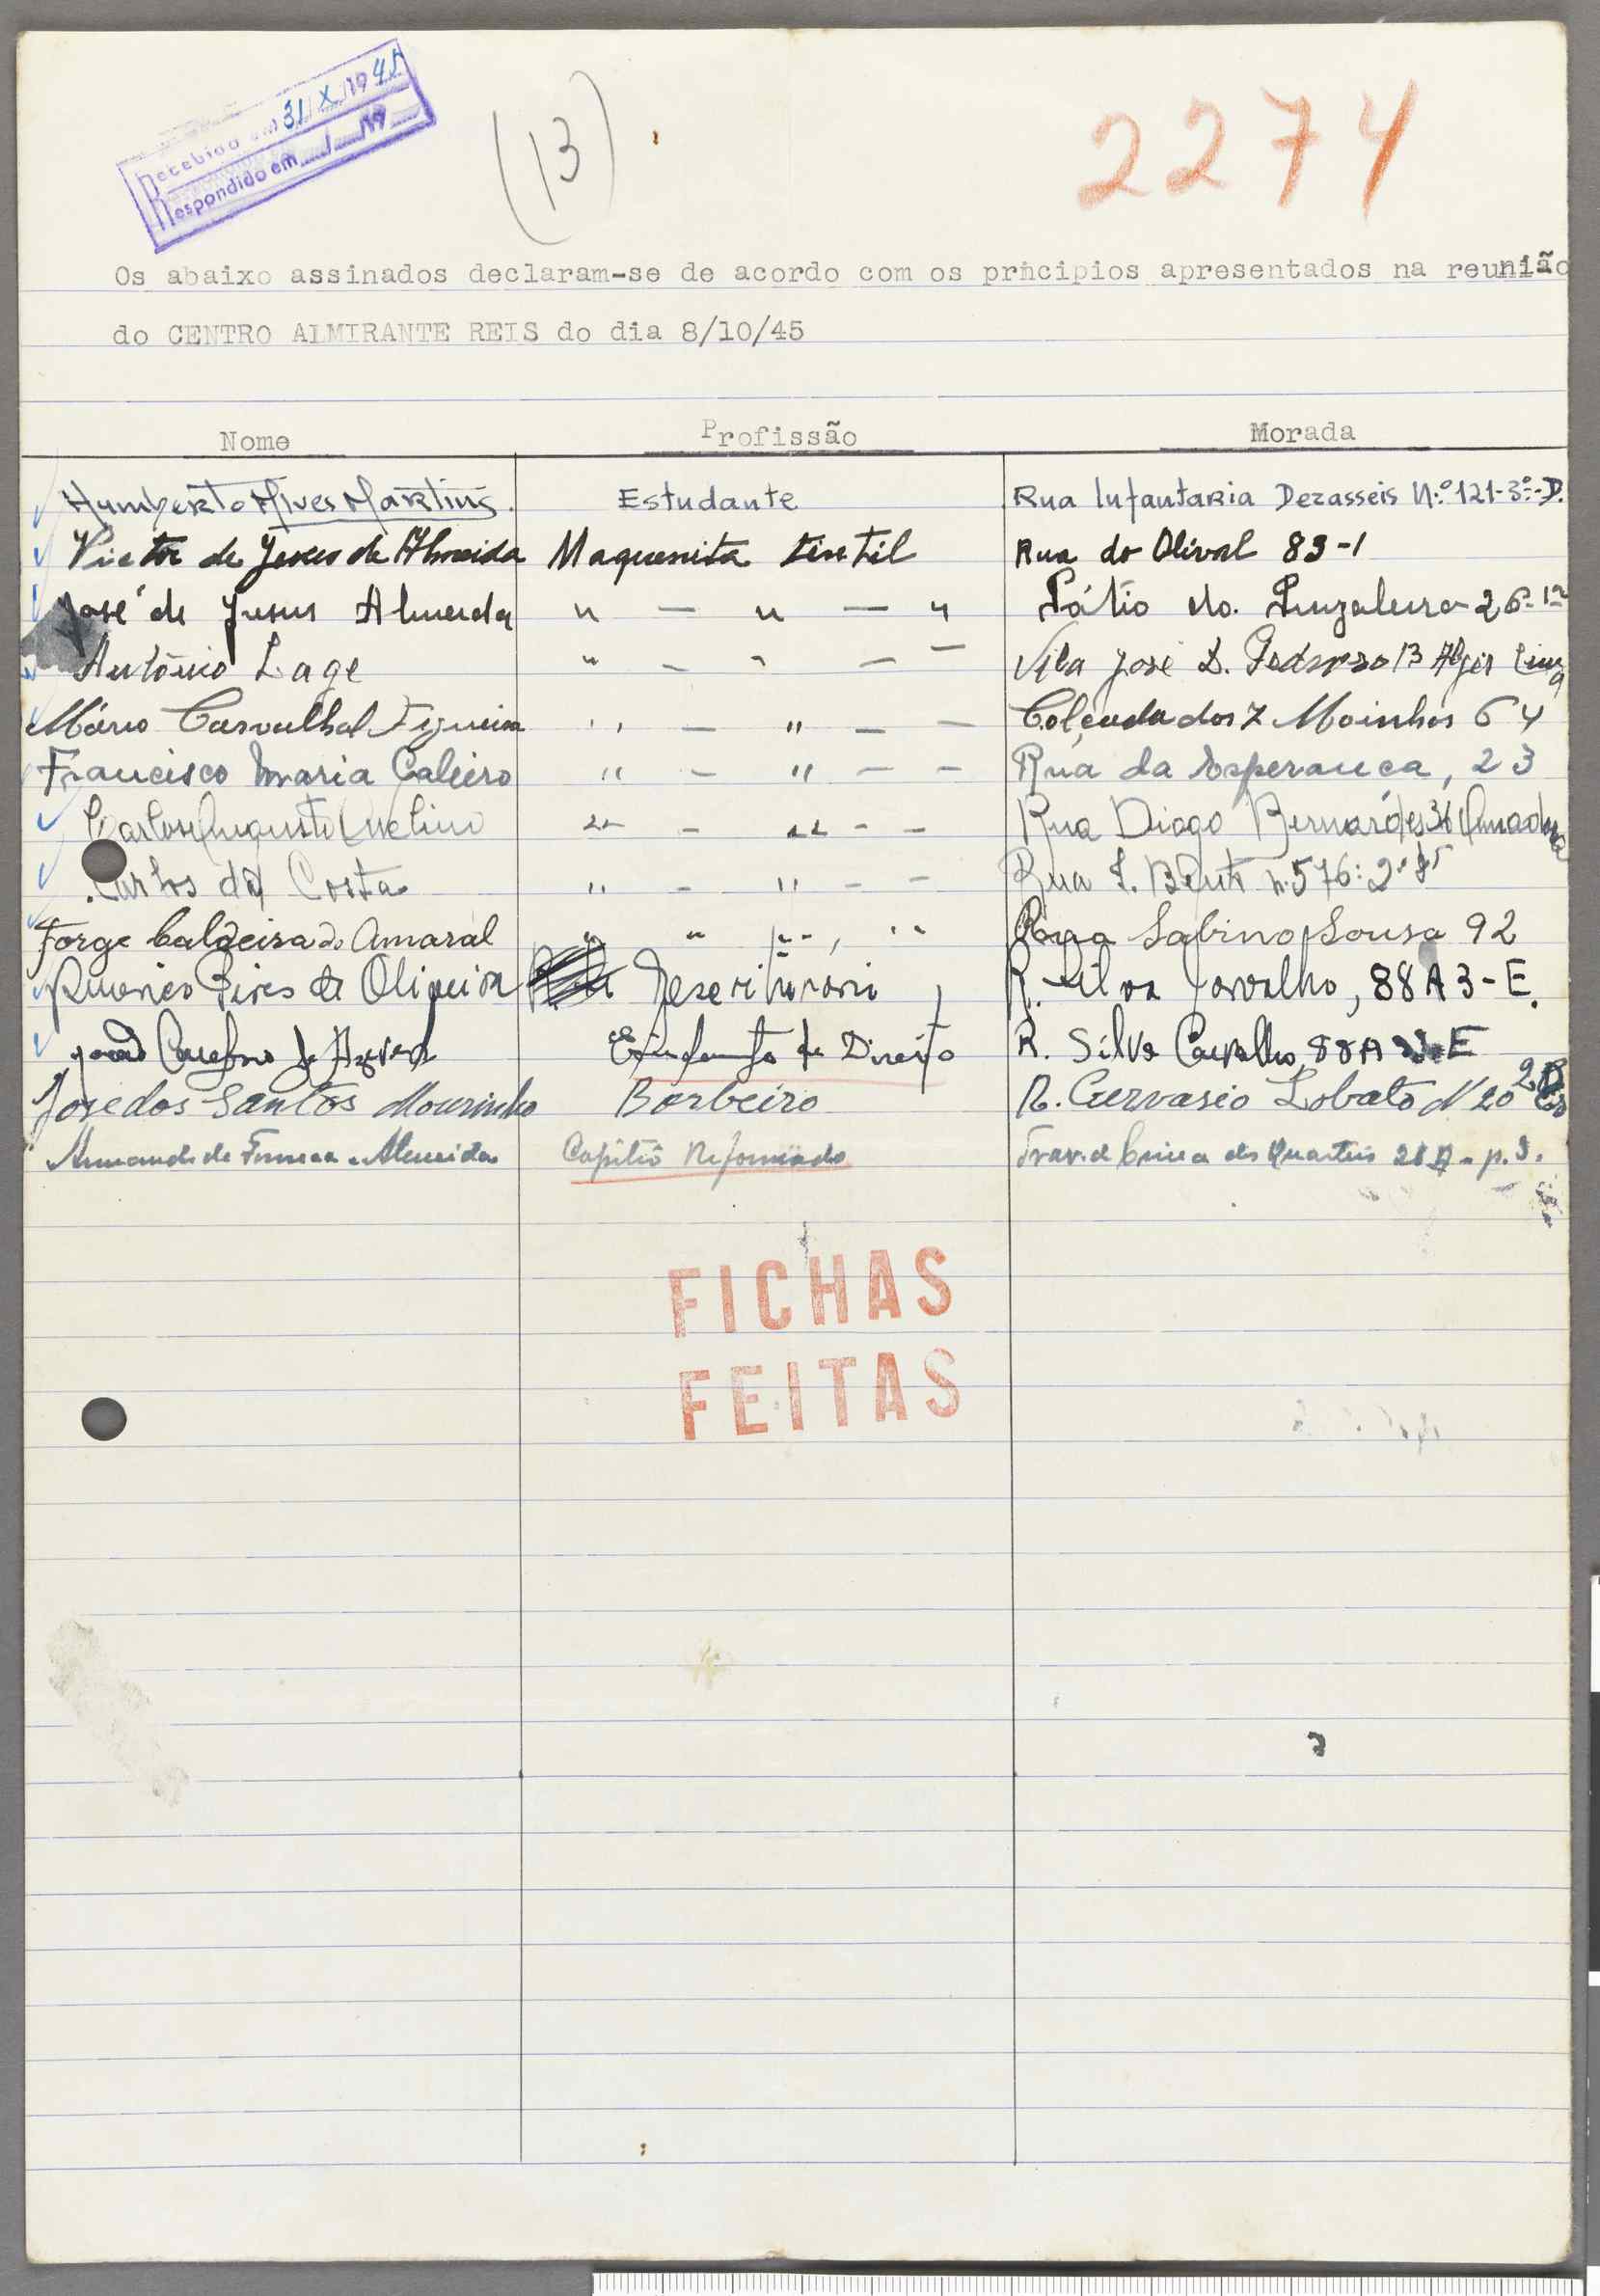 Recebido em 31/X/1945
Respondido em / /19
(13)
2274
Os abaixo assinados declaram-se de acordo com os prncipios apresentados na reunião
do CENTRO ALMIRANTE REIS do dia 8/10/45
Nome Profissão Morada
Humberto Alves Martins. Estudante Rua Infantaria Dezasseis N.º 121-3º-D.
Victor de Jesus de Almeida Maquenista textil Rua do Olival 83-1
José de Jesus Almeida " — " — " Pátio do 26-1º
António Lage " — " — — Vila José D. Pedroso 13 Algés Cima
Mário Carvalhal Figueira " — " — — Calçada dos 7 Moinhos 64
Francisco Maria Caleiro " — " — — Rua da Esperança, 23
Carlos Augusto " — " — — Rua Diogo Bernardes 36 Amadora
Carlos da Costa " — " — — Rua
Jorge Caldeira do Amaral " " " " Rua Sabino Sousa 92
Pires de Oliveira R. Silva Carvalho, 88A 3-E.
Estudante de Direito R. Silva Carvalho 88A E
José dos Santos Mourinho Barbeiro R. Gervasio Lobato Nº 20 2º
Armando da Fonseca Almeida Capitão Reformado Trav. d Cruz dos Quarteis 28
FICHAS
FEITAS